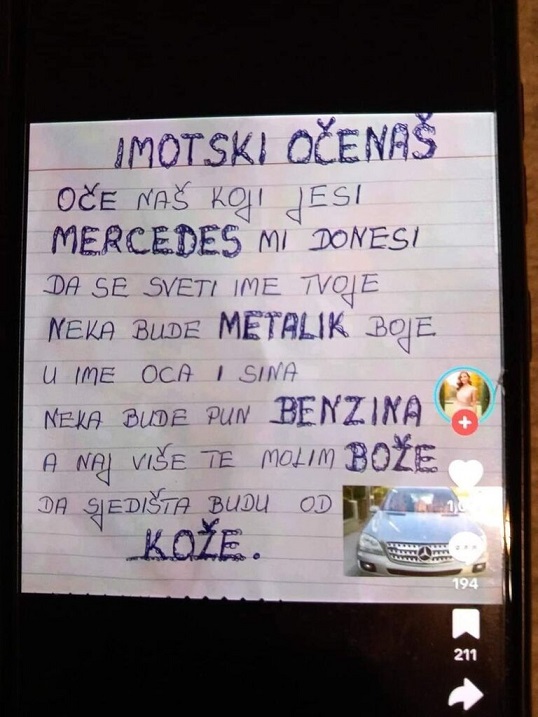 IMOTSKI OČENAŠ
OČE NAŠ KOJI JESI
MERCEDES MI DONESI
DA SE SVETI IME TVOJE
NEKA BUDE METALIK BOJE
U IME OCA I SINA
NEKA BUDE PUN BENZINA
A NAJ VIŠE TE MOLIM BOŽE
DA SJEDIŠTA BUDU OD
KOŽE.
194
211